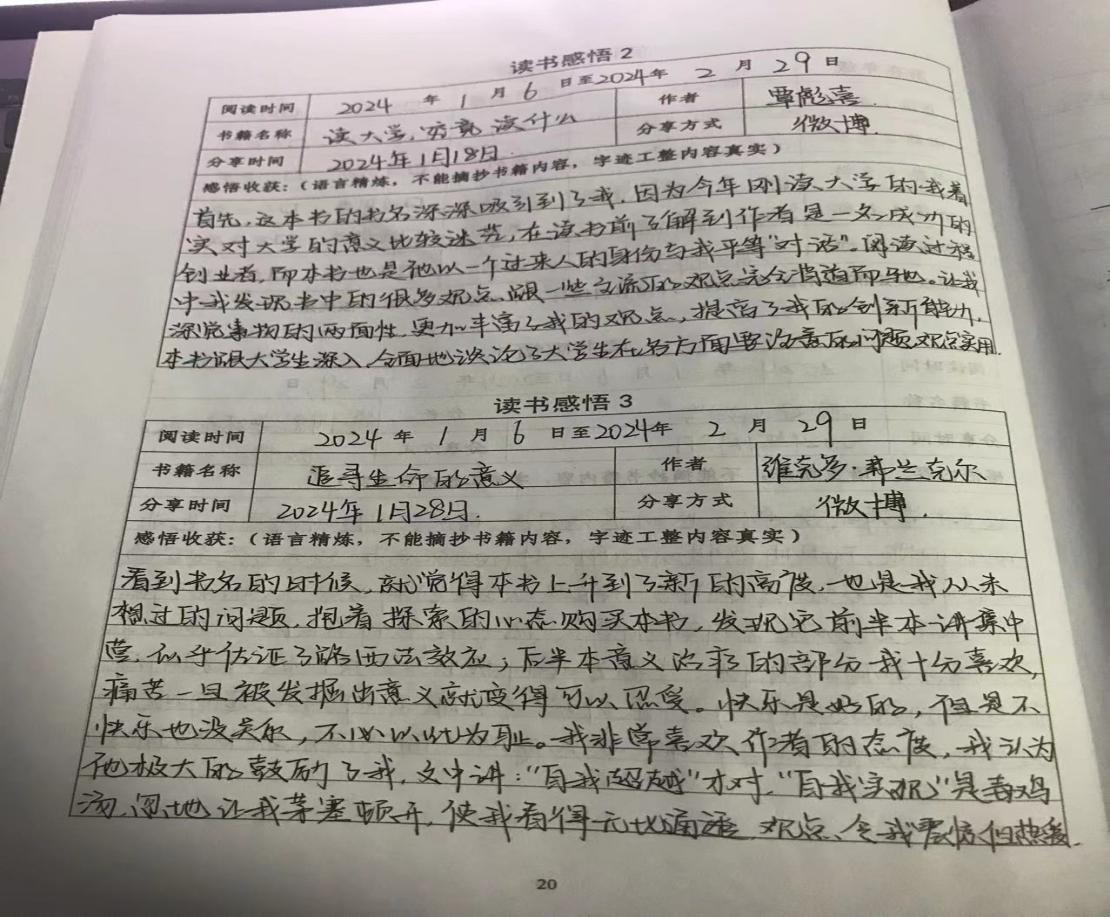 读书感悟 2
阅读时间 2024 年 1 月 6 日至2024年 2 月 29 日
书籍名称 读大学,究竟读什么 作者 覃彪喜
分享时间 2024年1月18日. 分享方式 微博
感悟收获:(语言精炼,不能摘抄书籍内容,字迹工整内容真实)
首先,这本书的书名深深吸引到了我,因为今年刚读大学的我着
实对大学的意义比较迷茫,在读书前了解到作者是一名成功的
创业者,而本书也是他以一个过来人的身份与我平等“对话”。阅读过程
中我发现书中的很多观点,跟一些主流的观点完全背道而驰。让我
深觉事物的两面性,更加丰富了我的观点,提高了我的创新能力,
本书跟大学生深入、全面地谈论了大学生在各方面要注意的问题,观点实用.
读书感悟 3
阅读时间 2024 年 1 月 6 日至2024年 2 月 29 日
书籍名称 追寻生命的意义 作者 维克多·弗兰克尔
分享时间 2024年1月28日. 分享方式 微博.
感悟收获:(语言精炼,不能摘抄书籍内容,字迹工整内容真实)
看到书名的时候,就觉得本书上升到了新的高度,也是我从未
想过的问题,抱着探索的心态购买本书,发现它前半本讲集中
营,似乎佐证了路西法效应;后半本意义治疗的部分我十分喜欢,
痛苦一旦被发掘出意义就变得可以忍受。快乐是好的,但是不
快乐也没关系,不必以此为耻。我非常喜欢作者的态度,我认为
他极大的鼓励了我,文中讲:“自我超越”才对,“自我实现”是毒鸡
汤,忽地让我茅塞顿开,使我看得无比通透,观点令我震惊但热爱.
20